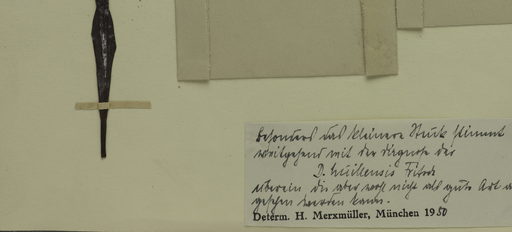 besonders das kleinere Stück stimmt
weitgehend mit der Diagnose der
D. huillensis Fritsch
überein die aber wohl nicht als gute Art a
gesehen werden kann.
Determ. H. Merxmüller, München 1950